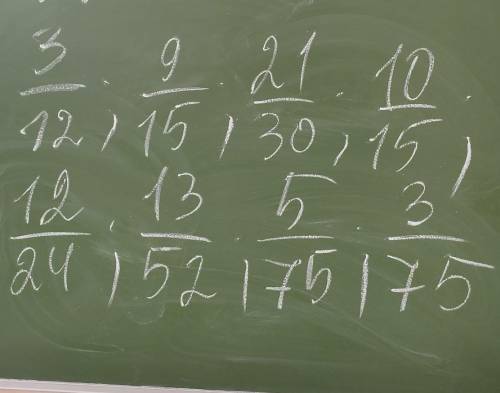 3/12; 9/15; 21/30; 10/15;
12/24; 13/52; 5/75; 3/75